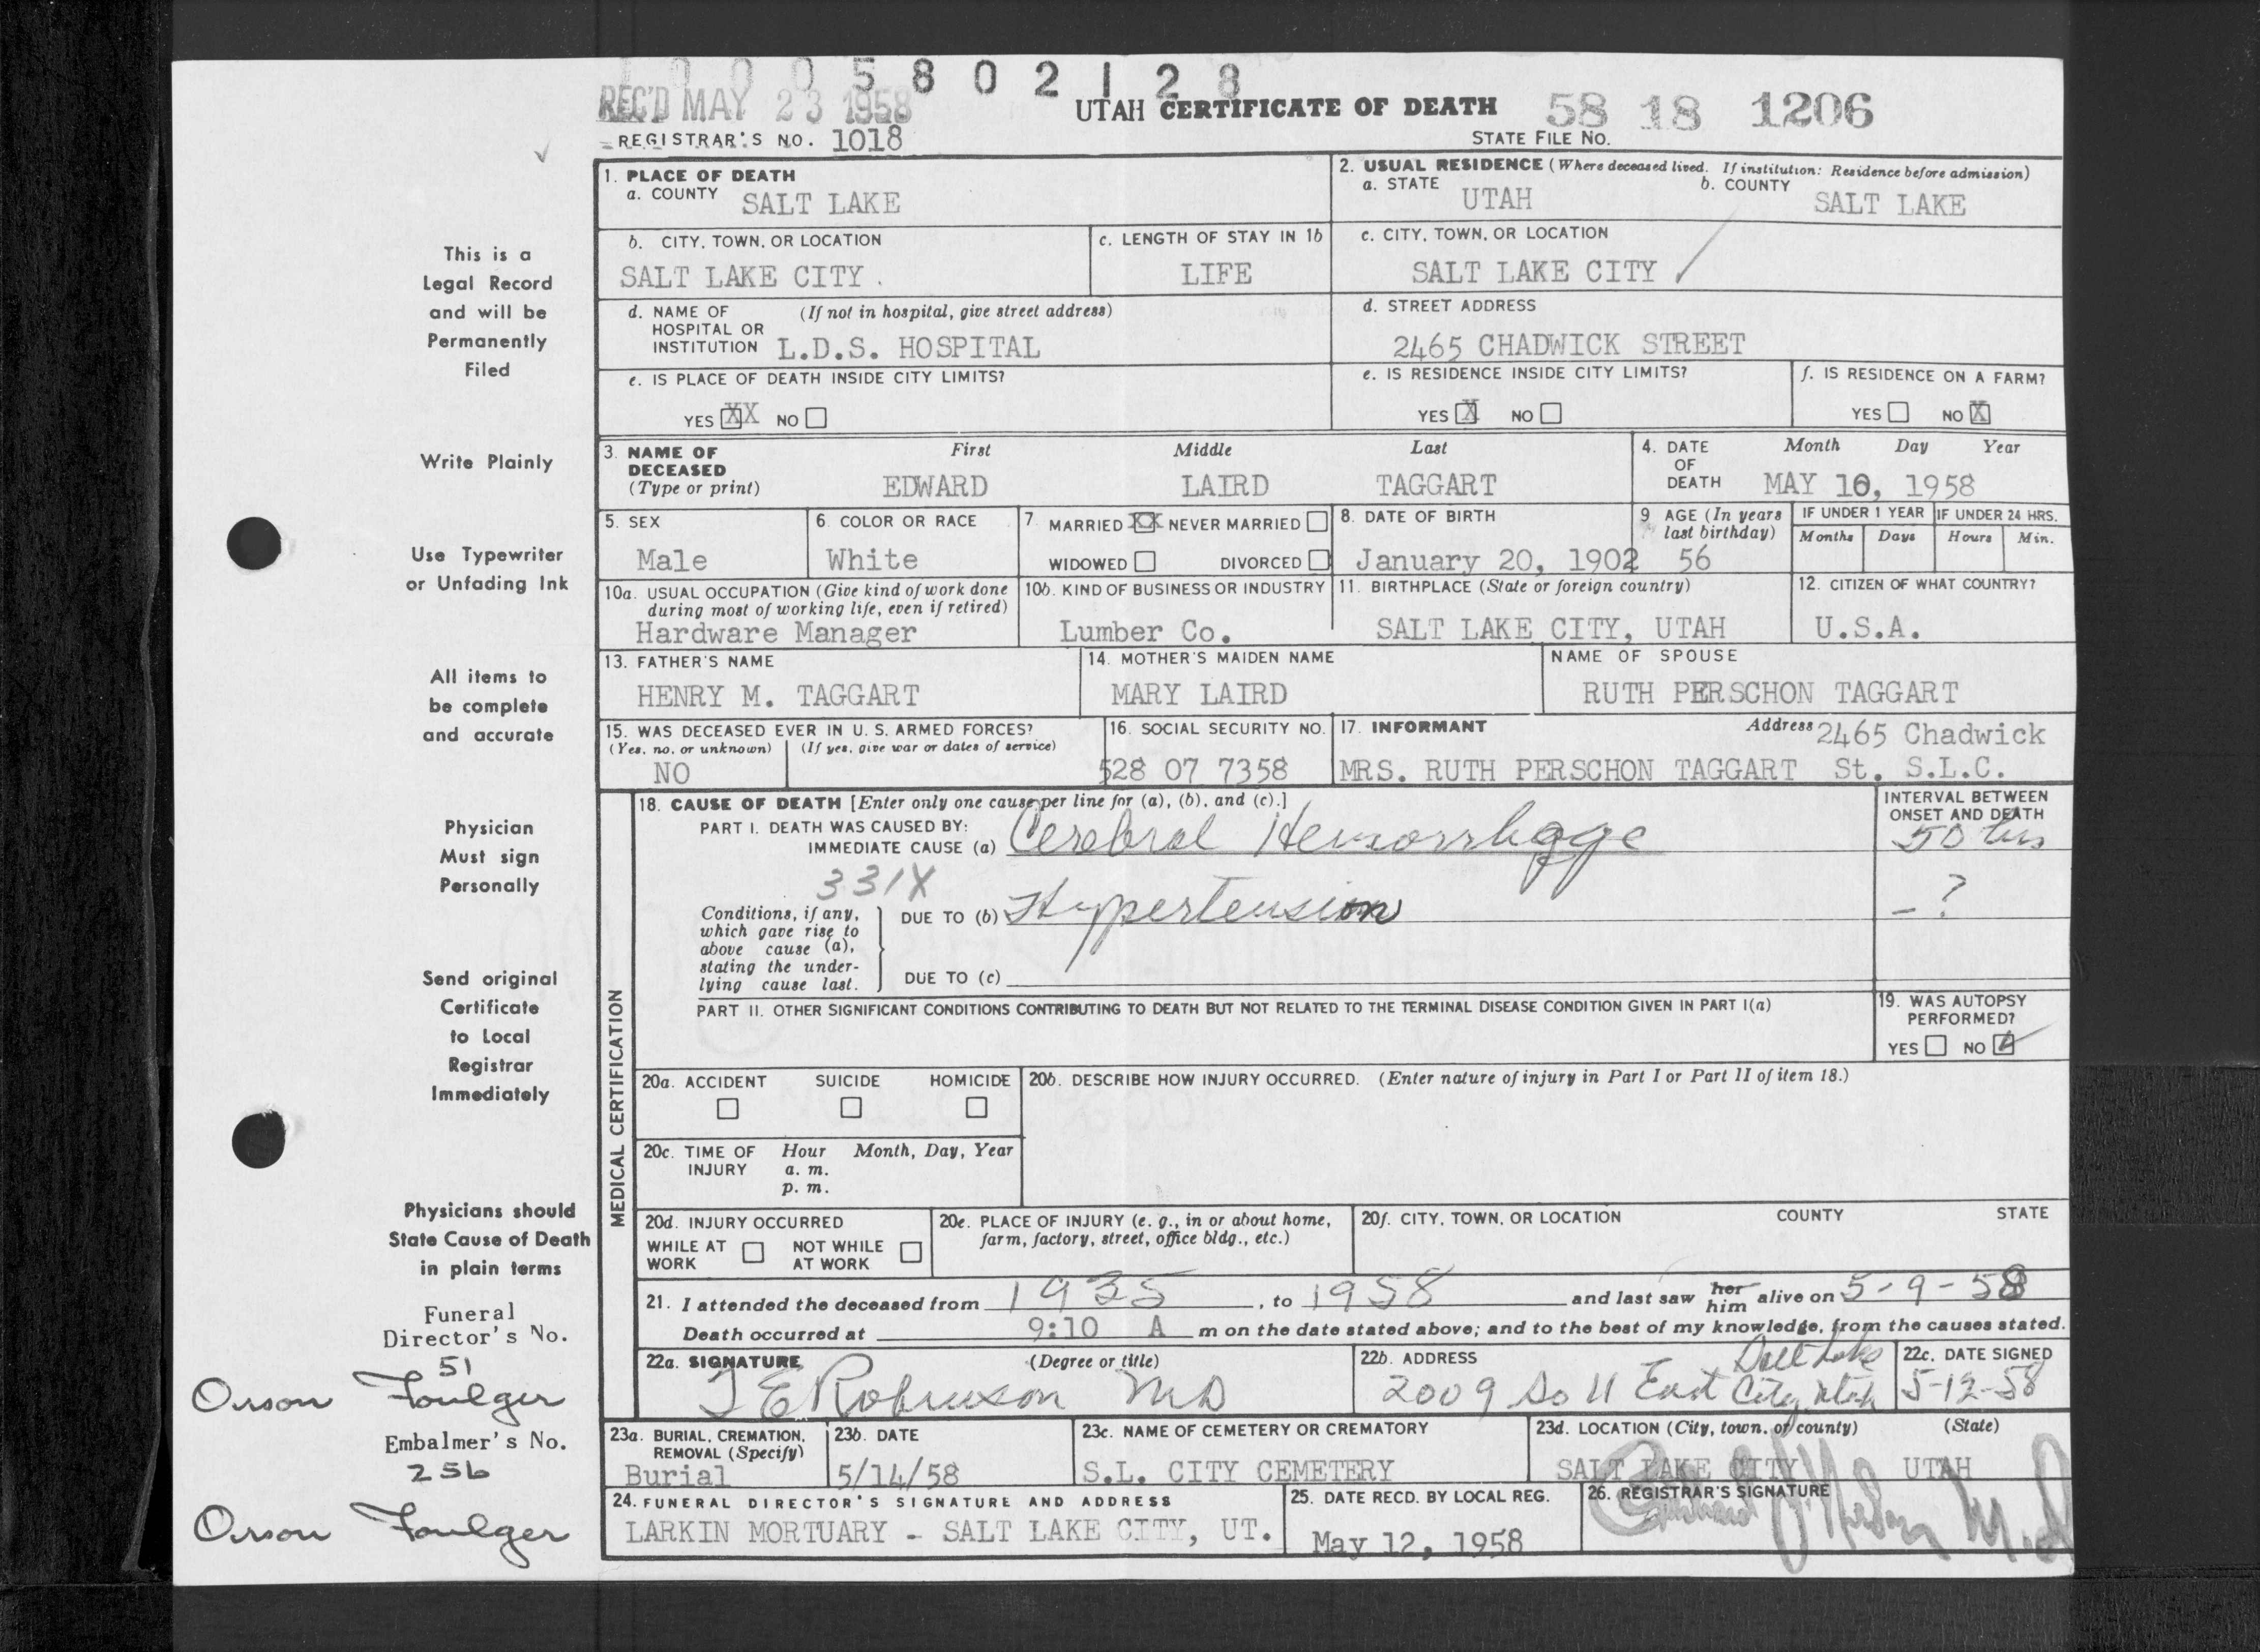 1 0 0 0 5 8 0 2 1 2 8
REC'D MAY 23 1958
UTAH CERTIFICATE OF DEATH 58 18 1206
REGISTRAR'S NO. 1018
STATE FILE NO.
1. PLACE OF DEATH
a. COUNTY SALT LAKE
2. USUAL RESIDENCE (Where deceased lived. If institution: Residence before admission)
a. STATE UTAH b. COUNTY SALT LAKE
b. CITY, TOWN, OR LOCATION
SALT LAKE CITY
c. LENGTH OF STAY IN 1b
LIFE
c. CITY, TOWN, OR LOCATION
SALT LAKE CITY
d. NAME OF (If not in hospital, give street address)
HOSPITAL OR
INSTITUTION L.D.S. HOSPITAL
d. STREET ADDRESS
2465 CHADWICK STREET
e. IS PLACE OF DEATH INSIDE CITY LIMITS?
YES XX NO
e. IS RESIDENCE INSIDE CITY LIMITS?
YES X NO
f. IS RESIDENCE ON A FARM?
YES NO X
3. NAME OF DECEASED (Type or print)
First Middle Last
EDWARD LAIRD TAGGART
4. DATE OF DEATH Month Day Year
MAY 10, 1958
5. SEX
Male
6. COLOR OR RACE
White
7. MARRIED XX NEVER MARRIED
WIDOWED DIVORCED
8. DATE OF BIRTH
January 20, 1902
9 AGE (In years last birthday)
56
IF UNDER 1 YEAR IF UNDER 24 HRS.
Months Days Hours Min.
10a. USUAL OCCUPATION (Give kind of work done
during most of working life, even if retired)
Hardware Manager
10b. KIND OF BUSINESS OR INDUSTRY
Lumber Co.
11. BIRTHPLACE (State or foreign country)
SALT LAKE CITY, UTAH
12. CITIZEN OF WHAT COUNTRY?
U.S.A.
13. FATHER'S NAME
HENRY M. TAGGART
14. MOTHER'S MAIDEN NAME
MARY LAIRD
NAME OF SPOUSE
RUTH PERSCHON TAGGART
15. WAS DECEASED EVER IN U. S. ARMED FORCES?
(Yes, no, or unknown) (If yes, give war or dates of service)
NO
16. SOCIAL SECURITY NO.
528 07 7358
17. INFORMANT Address 2465 Chadwick
MRS. RUTH PERSCHON TAGGART St. S.L.C.
MEDICAL CERTIFICATION
18. CAUSE OF DEATH [Enter only one cause per line for (a), (b), and (c).]
PART I. DEATH WAS CAUSED BY:
IMMEDIATE CAUSE (a) Cerebral Hemorrhagge
INTERVAL BETWEEN
ONSET AND DEATH
50 hrs
331X
Conditions, if any,
which gave rise to
above cause (a),
stating the under-
lying cause last.
DUE TO (b) Hypertension
- ?
DUE TO (c)
PART II. OTHER SIGNIFICANT CONDITIONS CONTRIBUTING TO DEATH BUT NOT RELATED TO THE TERMINAL DISEASE CONDITION GIVEN IN PART I(a)
19. WAS AUTOPSY
PERFORMED?
YES NO
20a. ACCIDENT SUICIDE HOMICIDE
20b. DESCRIBE HOW INJURY OCCURRED. (Enter nature of injury in Part I or Part II of item 18.)
20c. TIME OF INJURY Hour Month, Day, Year
a. m.
p. m.
20d. INJURY OCCURRED
WHILE AT WORK NOT WHILE AT WORK
20e. PLACE OF INJURY (e. g., in or about home,
farm, factory, street, office bldg., etc.)
20f. CITY, TOWN, OR LOCATION COUNTY STATE
21. I attended the deceased from 1935, to 1958 and last saw her him alive on 5-9-58
Death occurred at 9:10 A m on the date stated above; and to the best of my knowledge, from the causes stated.
22a. SIGNATURE (Degree or title)
T E Robinson MD
22b. ADDRESS
2009 So 11 East Salt Lake City, Utah
22c. DATE SIGNED
5-12-58
23a. BURIAL, CREMATION,
REMOVAL (Specify)
Burial
23b. DATE
5/14/58
23c. NAME OF CEMETERY OR CREMATORY
S.L. CITY CEMETERY
23d. LOCATION (City, town, or county) (State)
SALT LAKE CITY UTAH
24. FUNERAL DIRECTOR'S SIGNATURE AND ADDRESS
LARKIN MORTUARY - SALT LAKE CITY, UT.
25. DATE RECD. BY LOCAL REG.
May 12, 1958
26. REGISTRAR'S SIGNATURE
M.D
This is a
Legal Record
and will be
Permanently
Filed
Write Plainly
Use Typewriter
or Unfading Ink
All items to
be complete
and accurate
Physician
Must sign
Personally
Send original
Certificate
to Local
Registrar
Immediately
Physicians should
State Cause of Death
in plain terms
Funeral
Director's No.
51
Orson Foulger
Embalmer's No.
256
Orson Foulger